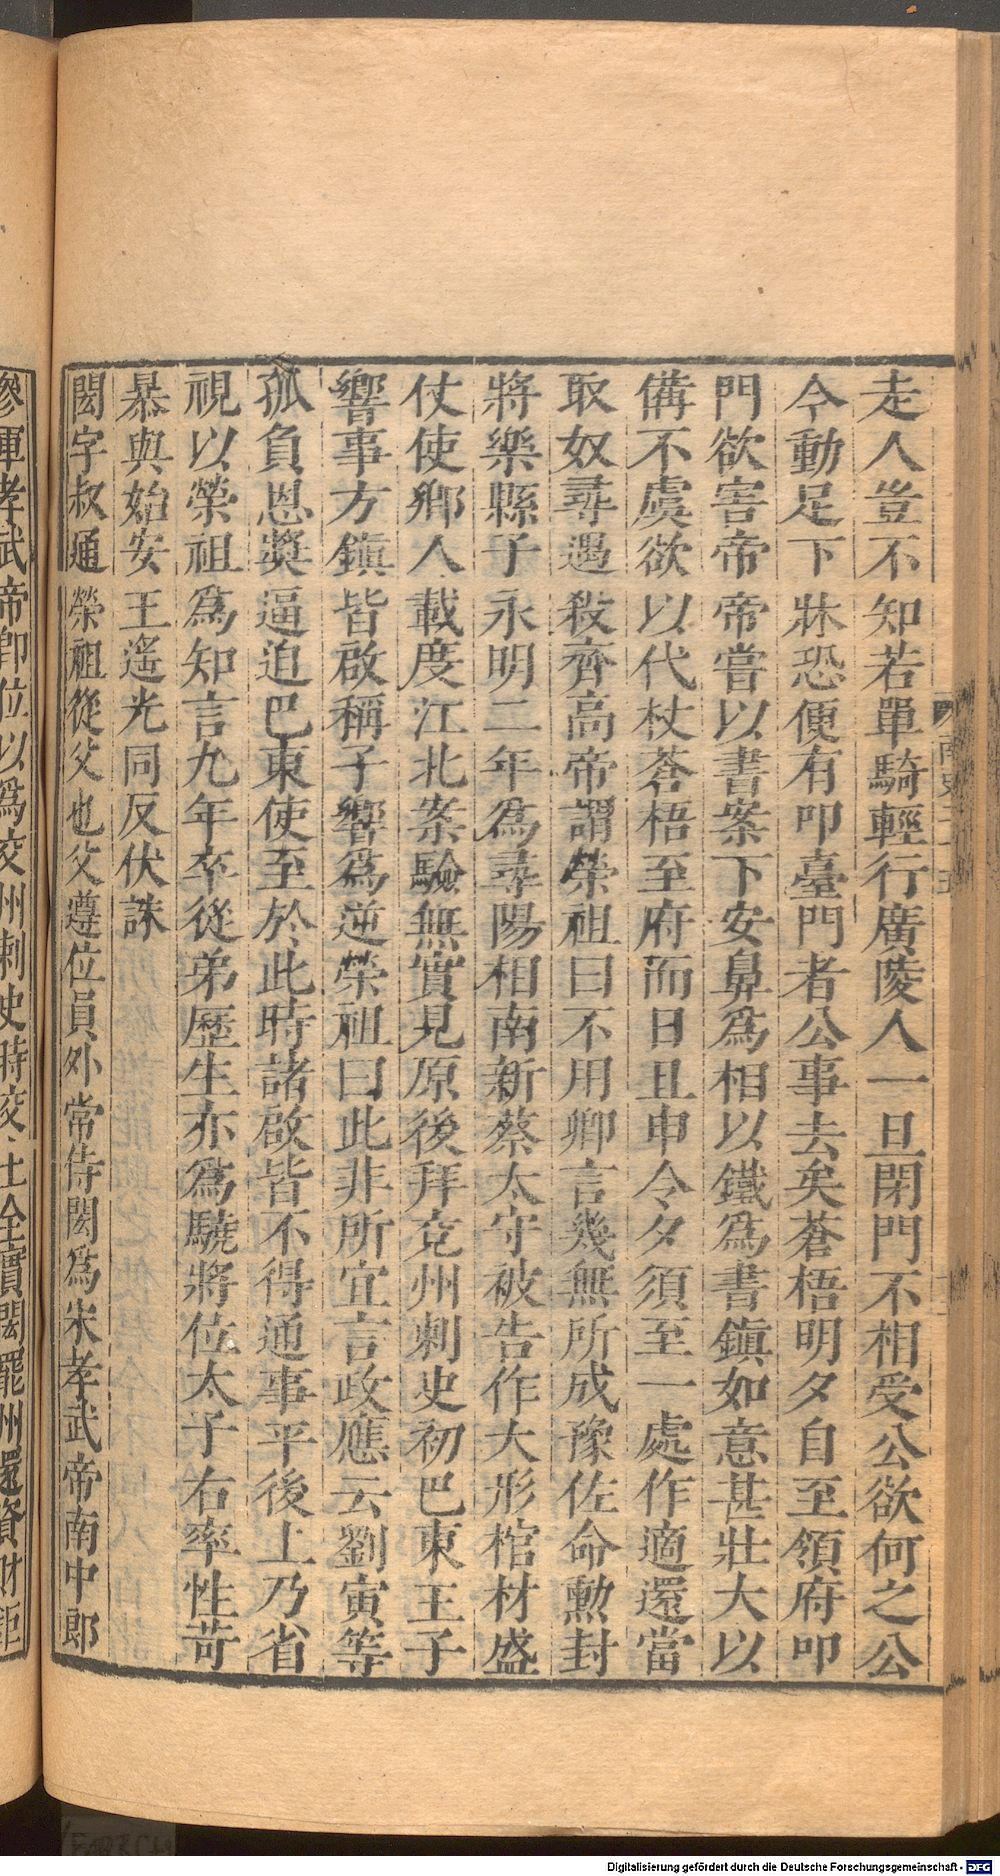 走人豈不知若單騎輕行廣陵人一旦閉門不相受公欲何之公
今動足下牀恐便有叩臺門者公事去矣蒼梧明夕自至領府叩
門欲害帝帝嘗以書案下安鼻爲楯以鐵爲書鎮如意甚壯大以
備不虞欲以代杖蒼梧至府而曰且申今夕須至一處作適還當
取奴尋遇殺齊高帝謂榮祖曰不用卿言幾無所成豫佐命勲封
將樂縣子永明二年爲尋陽相南新蔡太守被告作大形棺材盛
仗使鄉人載度江北案驗無實見原後拜兗州刺史初巴東王子
響事方鎮皆啟稱子響爲逆榮祖曰此非所宜言政應云劉寅等
孤負恩奬逼迫巴東使至於此時諸啟皆不得通事平後上乃省
視以榮祖爲知言九年卒從弟歷生亦爲驍將位太子右率性苛
暴與始安王遙光同反伏誅
閎字叔通榮祖從父也父遵位員外常侍閎爲宋孝武帝南中郎
參軍孝武帝即位以爲交州刺史時交土全實閎罷州還資財鉅
Digitalisierung gefördert durch die Deutsche Forschungsgemeinschaft - DFG